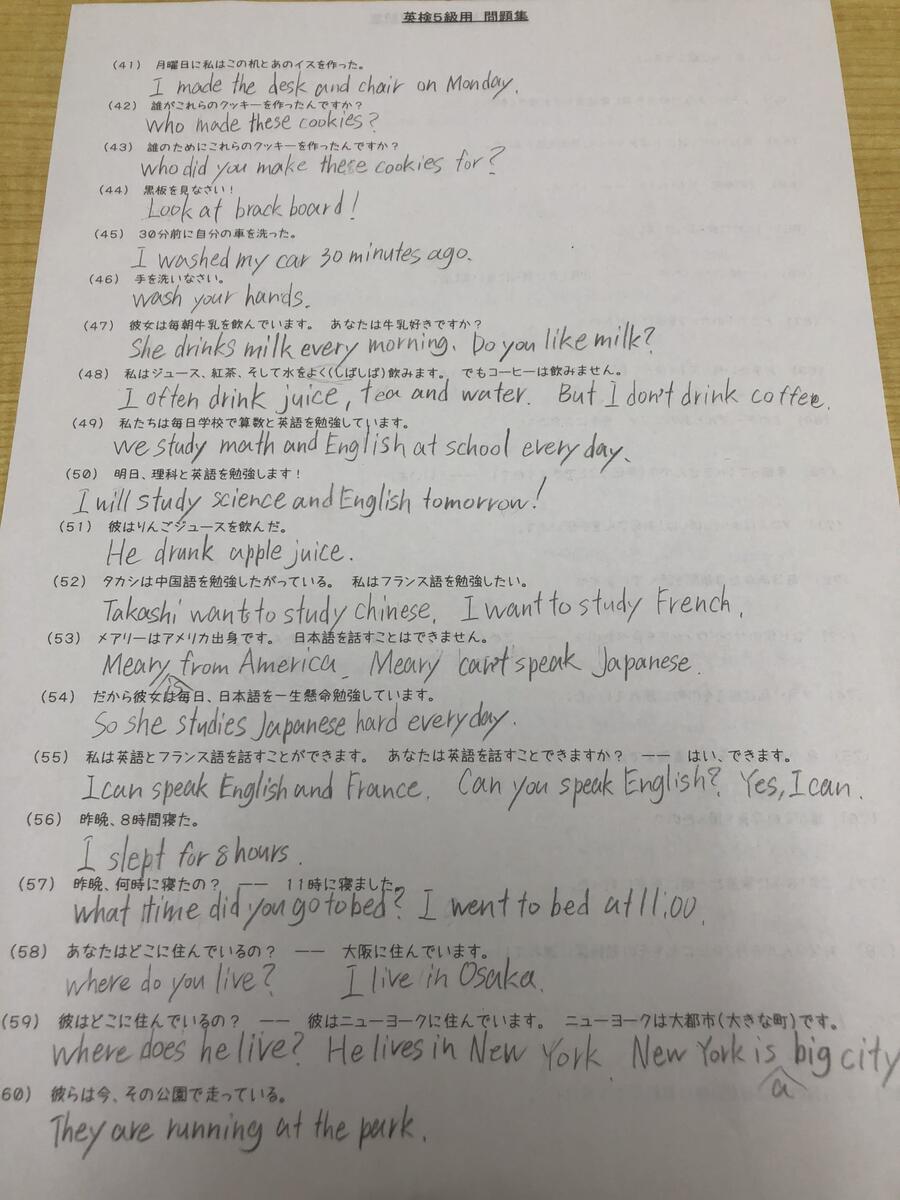 英検5級用 問題集
(41) 月曜日に私はこの机とあのイスを作った。
I made the desk and chair on Monday.
(42) 誰がこれらのクッキーを作ったんですか？
who made these cookies?
(43) 誰のためにこれらのクッキーを作ったんですか？
who did you make these cookies for?
(44) 黒板を見なさい！
Look at brack board!
(45) 30分前に自分の車を洗った。
I washed my car 30 minutes ago.
(46) 手を洗いなさい。
wash your hands.
(47) 彼女は毎朝牛乳を飲んでいます。 あなたは牛乳好きですか？
She drinks milk every morning. Do you like milk?
(48) 私はジュース、紅茶、そして水をよく(しばしば)飲みます。 でもコーヒーは飲みません。
I often drink juice, tea and water. But I don't drink coffee.
(49) 私たちは毎日学校で算数と英語を勉強しています。
we study math and English at school every day.
(50) 明日、理科と英語を勉強します！
I will study science and English tomorrow!
(51) 彼はりんごジュースを飲んだ。
He drank apple juice.
(52) タカシは中国語を勉強したがっている。 私はフランス語を勉強したい。
Takashi want to study chinese. I want to study French.
(53) メアリーはアメリカ出身です。 日本語を話すことはできません。
Meary is from America. Meary can't speak Japanese.
(54) だから彼女は毎日、日本語を一生懸命勉強しています。
So she studies Japanese hard every day.
(55) 私は英語とフランス語を話すことができます。 あなたは英語を話すことできますか？ ―― はい、できます。
I can speak English and France. Can you speak English? Yes, I can.
(56) 昨晩、8時間寝た。
I slept for 8 hours.
(57) 昨晩、何時に寝たの？ ―― 11時に寝ました。
what time did you go to bed? I went to bed at 11:00.
(58) あなたはどこに住んでいるの？ ―― 大阪に住んでいます。
where do you live? I live in Osaka.
(59) 彼はどこに住んでいるの？ ―― 彼はニューヨークに住んでいます。 ニューヨークは大都市(大きな町)です。
where does he live? He lives in New York. New York is a big city
60) 彼らは今、その公園で走っている。
They are running at the park.